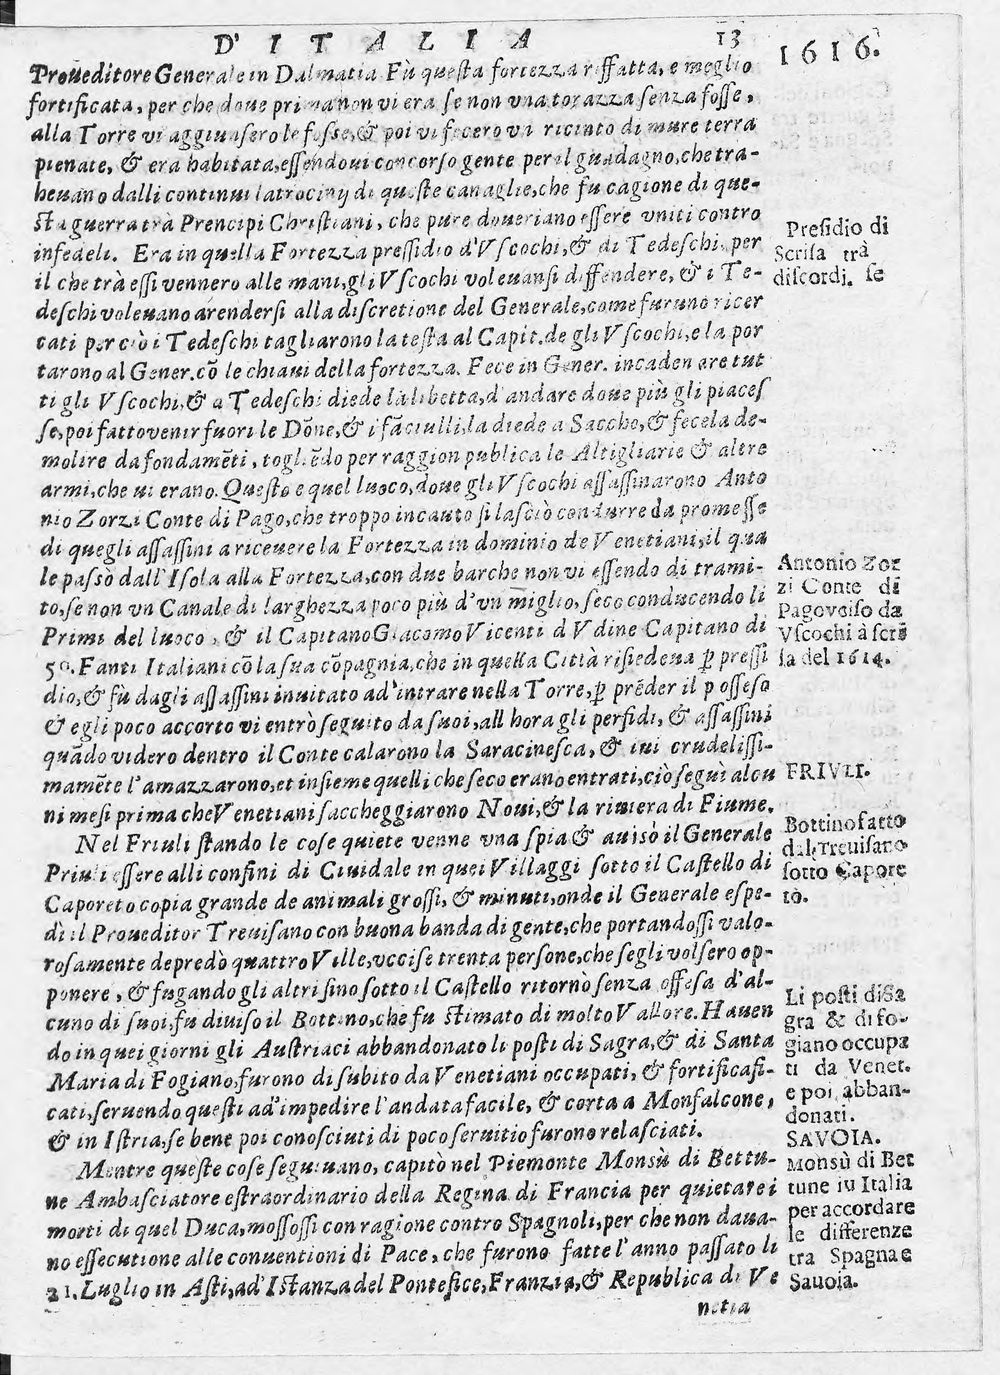 D' I T A L I A 13
1616.
Proueditore Generale in Dalmatia Fù questa fortezza riffatta, e meglio
fortificata, per che doue prima non vi era se non vna torazza senza fosse,
alla Torre vi aggiunsero le fosse, & poi vi fecero vn ricinto di mure terra
pienate, & era habitata, essendoui concorso gente per il guadagno, che tra-
heuano dalli continui latrocinij di queste canaglie, che fu cagione di que-
sta guerra trà Prencipi Christiani, che pure doueriano essere vniti contro
infedeli. Era in quella Fortezza pressidio d'Vscochi, & di Tedeschi, per
il che trà essi vennero alle mani, gli Vscochi voleuansi diffendere, & i Te-
deschi voleuano arendersi alla discretione del Generale, come furuno ricer
cati per ciò i Tedeschi tagliarono la testa al Capit. de gli Vscochi, e la por
tarono al Gener. cō le chiaui della fortezza. Fece in Gener. incadenare tut
ti gli Vscochi, & a Tedeschi diede la libetta, d'andare doue più gli piaces
se, poi fatto venir fuori le Dōne, & i fāciulli, la diede a Saccho, & fecela de-
molire da fondamēti, togliēdo per raggion publica le Altigliarie & altre
armi, che ui erano. Questo e quel luoco, doue gli Vscochi assassinarono Anto
nio Zorzi Conte di Pago, che troppo incauto si lasciò condurre da promesse
di quegli assassini a riceuere la Fortezza in dominio de Venetiani, il qua
le passò dall'Isola alla Fortezza, con due barche non vi essendo di trami-
to, se non vn Canale di larghezza poco più d'vn miglio, seco conducendo li
Primi del luoco, & il Capitano Giacomo Vicenti d Vdine Capitano di
50. Fanti Italiani cō la sua cōpagnia, che in quella Città risiedeua p̱ pressi
dio, & fù dagli assassini inuitato ad'intrare nella Torre, p̱ prēder il possesso
& egli poco accorto vi entrò seguito da suoi, all hora gli perfidi, & assassini
quādo videro dentro il Conte calarono la Saracinesca, & iui crudelissi-
mamēte l'amazzarono, et insieme quelli che seco erano entrati, ciò seguì alcu
ni mesi prima che Venetiani saccheggiarono Noui, & la riuiera di Fiume.
Nel Friuli stando le cose quiete venne vna spia & auisò il Generale
Priuli essere alli confini di Ciuidale in quei Villaggi sotto il Castello di
Caporeto copia grande de animali grossi, & minuti, onde il Generale espe-
dì il Proueditor Treuisano con buona banda di gente, che portandossi valo-
rosamente depredò quattro Ville, vccise trenta persone, che segli volsero op-
ponere, & fugando gli altri sino sotto il Castello ritornò senza offesa d'al-
cuno di suoi, fu diuiso il Bottino, che fu stimato di molto Vallore. Hauen
do in quei giorni gli Austriaci abbandonato li posti di Sagra, & di Santa
Maria di Fogiano, furono di subito da Venetiani occupati, & fortificasi-
cati, seruendo questi ad'impedire l'andata facile, & corta a Monfalcone,
& in Istria, se bene poi conosciuti di poco seruitio furono relasciati.
Mentre queste cose seguiuano, capitò nel Piemonte Monsù di Bettu-
ne Ambasciatore estraordinario della Regina di Francia per quietare i
moti di quel Duca, mossossi con ragione contro Spagnoli, per che non daua-
no essecutione alle conuentioni di Pace, che furono fatte l'anno passato li
21. Luglio in Asti, ad'Istanza del Pontefice, Franzia, & Republica di Ve
netia
Presidio di
Scrisa trà
discordi. se
Antonio Zor
zi Conte di
Pago veiso da
Vscochi à scri
sa del 1614.
FRIVLI.
Bottino fatto
dal Treuisano
sotto Capore
to.
Li posti di Sa
gra & di fo-
giano occupa
ti da Venet.
e poi abban-
donati.
SAVOIA.
Monsù di Bet
tune in Italia
per accordare
le differenze
tra Spagna e
Sauoia.